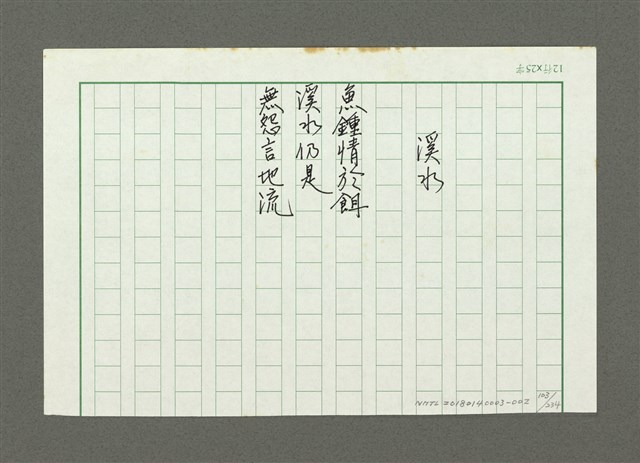 12行×25字
溪水
魚鍾情於餌
溪水仍是
無怨言地流
NMTL 20180140003-002
103/234